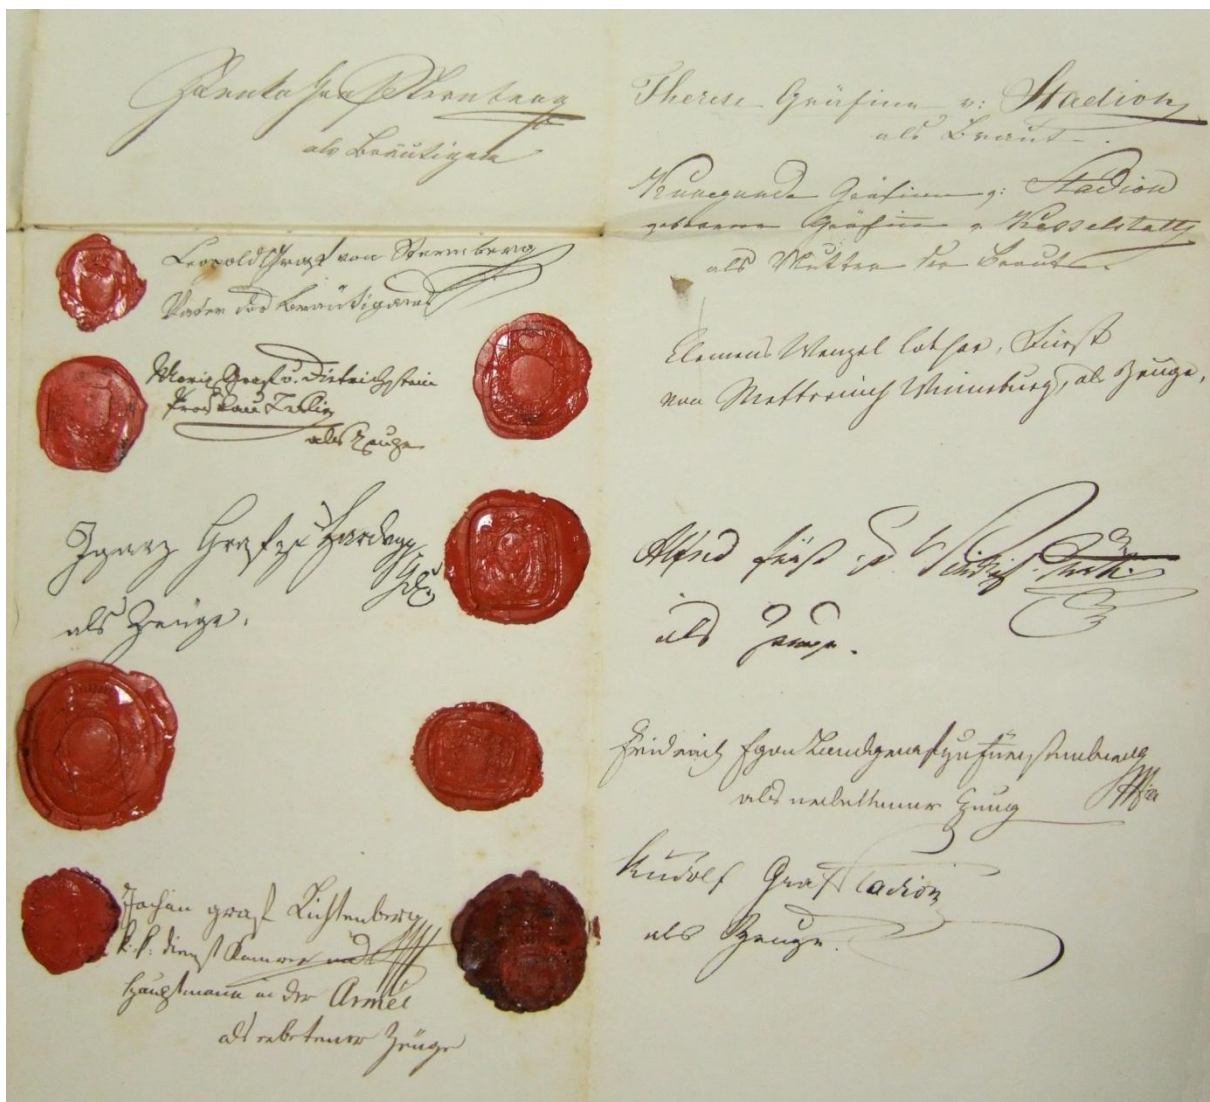 Zdenko Graf Sternberg
als Bräutigam
Leopold Graf von Sternberg
Vater des Bräutigams
Moriz Graf v. Dietrichstein
Proskau Leslie
als Zeuge
Ignaz Graf zu Hardegg
als Zeuge.
Johan graf Lichtenberg
k. k: Kämmerer und
Hauptmann in der Armée
als erbetener Zeuge
Therese Gräfinn v: Stadion
als Braut.
Kunegunde Gräfinn v: Stadion
geborene Gräfinn v Kesselstatt
als Mutter der Braut.
Clemens Wenzel Lothar, Fürst
von Metternich Winneburg, als Zeuge,
Alfred Fürst z. Windisch-Graetz
als Zeuge.
Friedrich Egon Landgraf zu Fürstenberg
als erbettener Zeug
Rudolf Graf Stadion
als Zeuge.